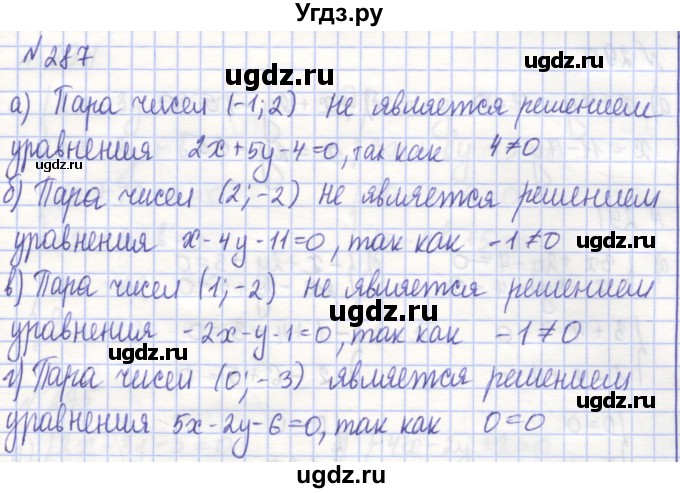 Угдз.ру
№ 287
ugdz.ru
а) Пара чисел (-1; 2) не является решением
уравнения 2x+5y-4=0, так как 4≠0
ugdz.ru
ugdz.ru
б) Пара чисел (2; -2) не является решением
уравнения x-4y-11=0, так как -1≠0
ugdz.ru
ugdz.ru
в) Пара чисел (1; -2) не является решением
уравнения -2x-y-1=0, так как -1≠0
ugdz.ru
г) Пара чисел (0; -3) является решением
ugdz.ru
уравнения 5x-2y-6=0, так как 0=0
ugdz.ru
ugdz.ru